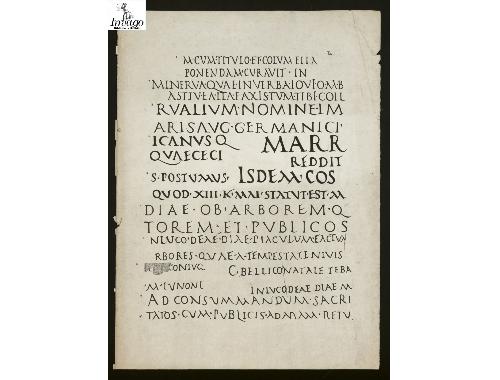 Imago
M·CVM·TITVLO·ET·COLVMELLA
PONENDAM·CVRAVIT·IN
MINERVA·QVAE·IN·VERBA
RVALIVM·NOMINE·IM
ARIS·AVG·GERMANICI
ICANVS Q
MARR
QVAE·CECI
REDDIT
S·POSTVMVS·
ISDEM·COS
QVOD·XIII·K·MAI·STATVT·EST·M
DIAE·OB·ARBOREM·Q
TOREM·ET·PVBLICOS
IN LVCO·DEAE·DIAE·PIACVLVM·FACTVM
RBORES·QVAE·A·TEMPESTATE·NIVIS
CONIVG
C·BELLICO·NATALE·TEBA
M·IVNONI
IN LVCO DEAE DIAE M
AD CONSVMMANDVM·SACRI
TATOS·CVM·PVBLICIS·AD·ARAM·RETV